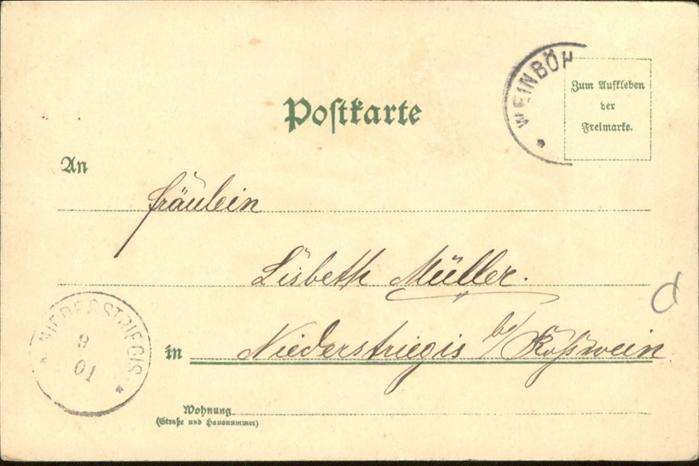 WEINBÖH
Zum Aufkleben
der
Freimarke.
Postkarte
An
Fräulein
Lisbeth Müller.
in Niederstriegis b/ Roßwein.
NIEDERSTRIEGIS
9
01
Wohnung
(Straße und Hausnummer)